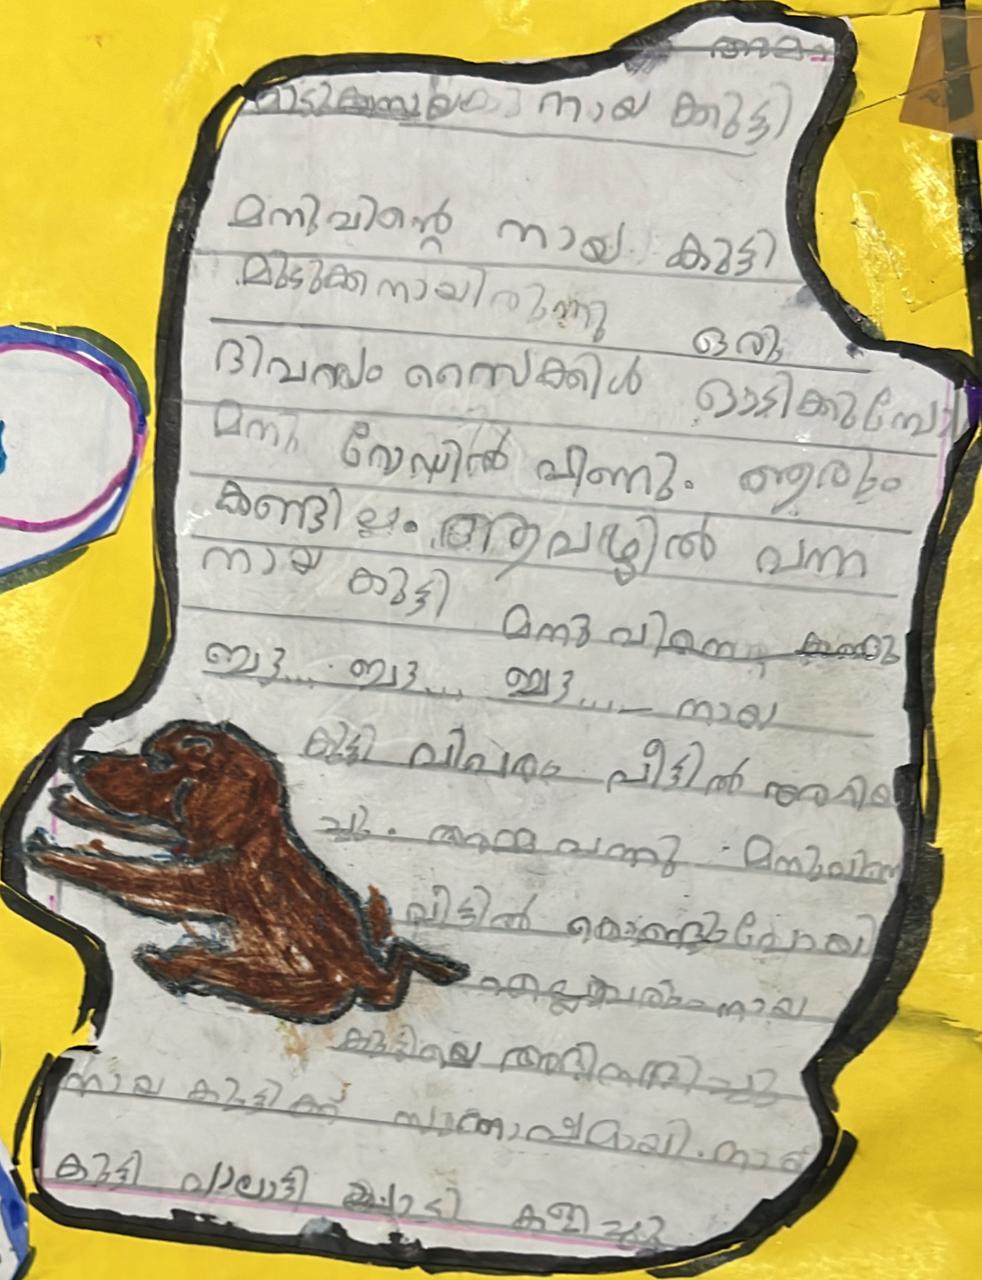 നായ കുട്ടി
മനുവിന്റെ നായ കുട്ടി
മിടുക്കനായിരുന്നു ഒരു
ദിവസം സൈക്കിൾ ഓടിക്കുമ്പോ
മനു റോഡിൽ വീണു. ആരും
കണ്ടില്ല. ആവഴിൽ വന്ന
നായ കുട്ടി മനുവിനെ കണ്ടു
ബൗ... ബൗ.... ബൗ...... നായ
കുട്ടി വിവരം വീട്ടിൽ അറിയി
ച്ചു. അമ്മ വന്നു. മനുവിനെ
വീട്ടിൽ കൊണ്ടുപോയി
എല്ലാവരും നായ
കുട്ടിയെ അഭിനന്ദിച്ചു
നായ കുട്ടിക്ക് സന്തോഷമായി. നായ
കുട്ടി വാലാട്ടി കളിച്ചു